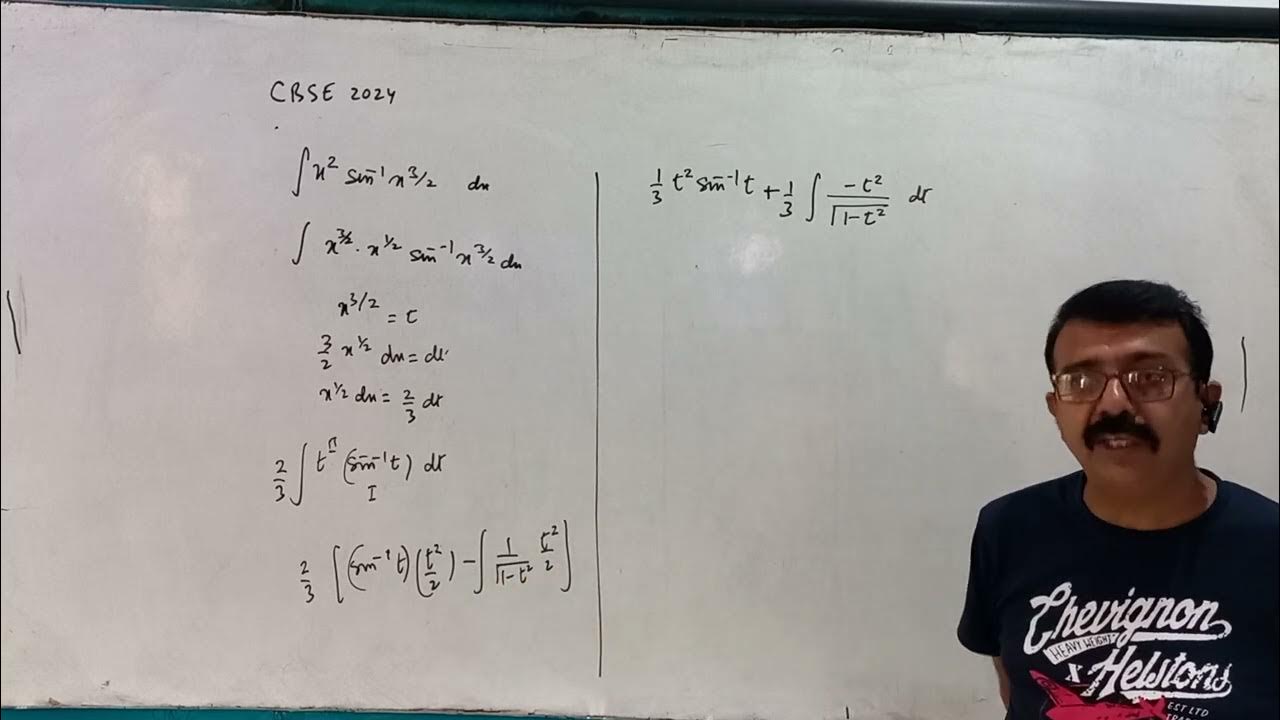 CBSE 2024
∫x² sin⁻¹x^3/2 dx
∫ x^3/2 · x^1/2 sin⁻¹x^3/2 dx
x^3/2 = t
3/2 x^1/2 dx = dt
x^1/2 dx = 2/3 dt
2/3 ∫ t (sin⁻¹t) dt
II
I
2/3 [(sin⁻¹t)(t²/2) − ∫ 1/√1−t² t²/2]
1/3 t² sin⁻¹t + 1/3 ∫ −t²/√1−t² dt
Chevignon
HEAVY WEIGHT
X Helstons
EST LTD